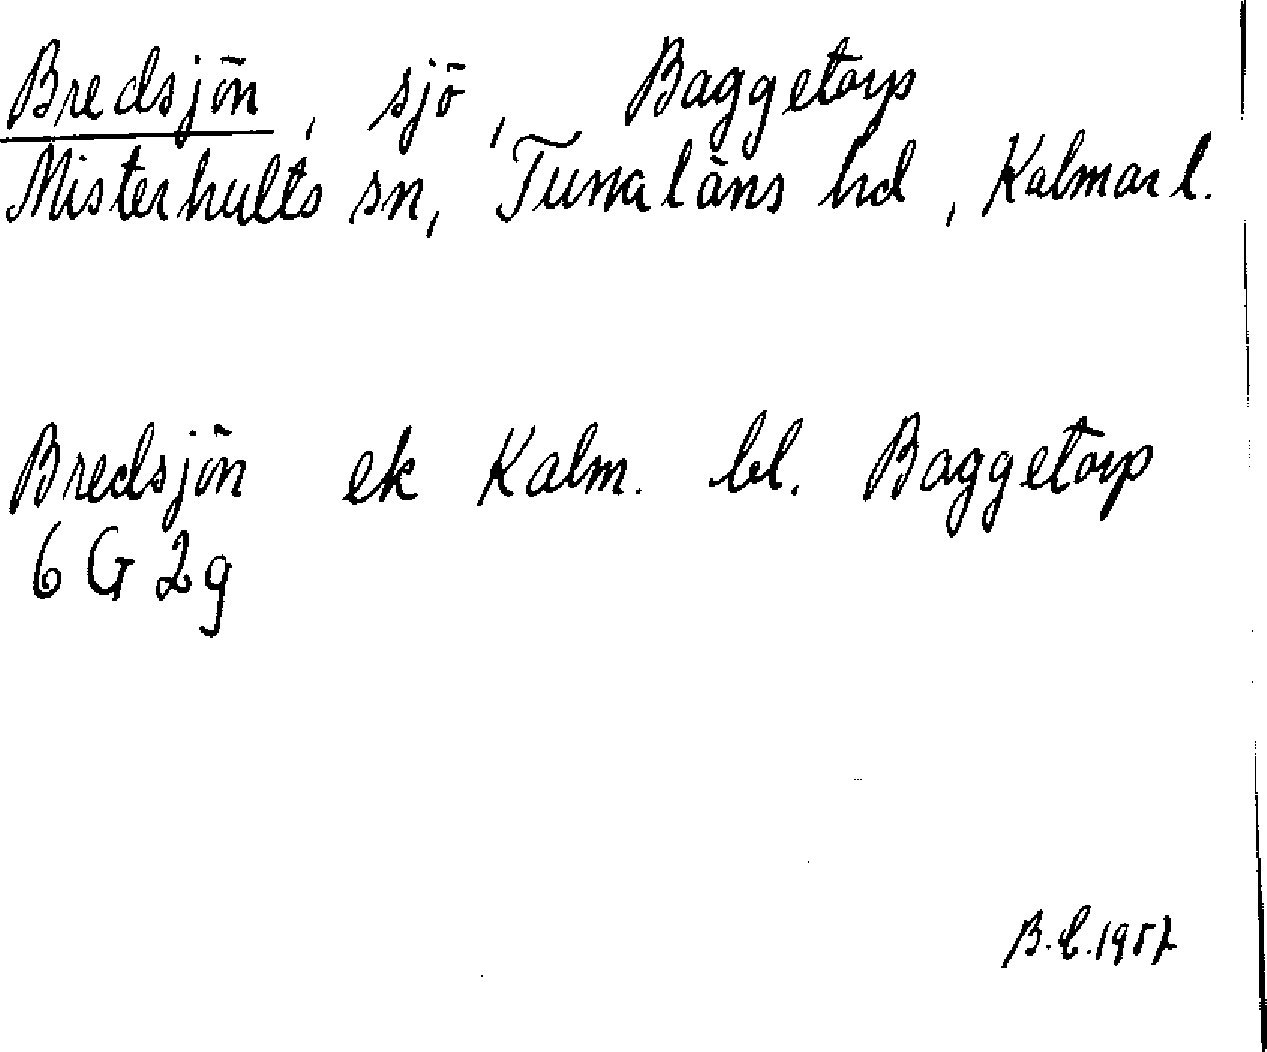 Bredsjön, sjö, Baggetorp
Misterhults sn, Tunaläns hd, Kalmar l.
Bredsjön ek Kalm. bl. Baggetorp
6 G 2g
B.C. 1957